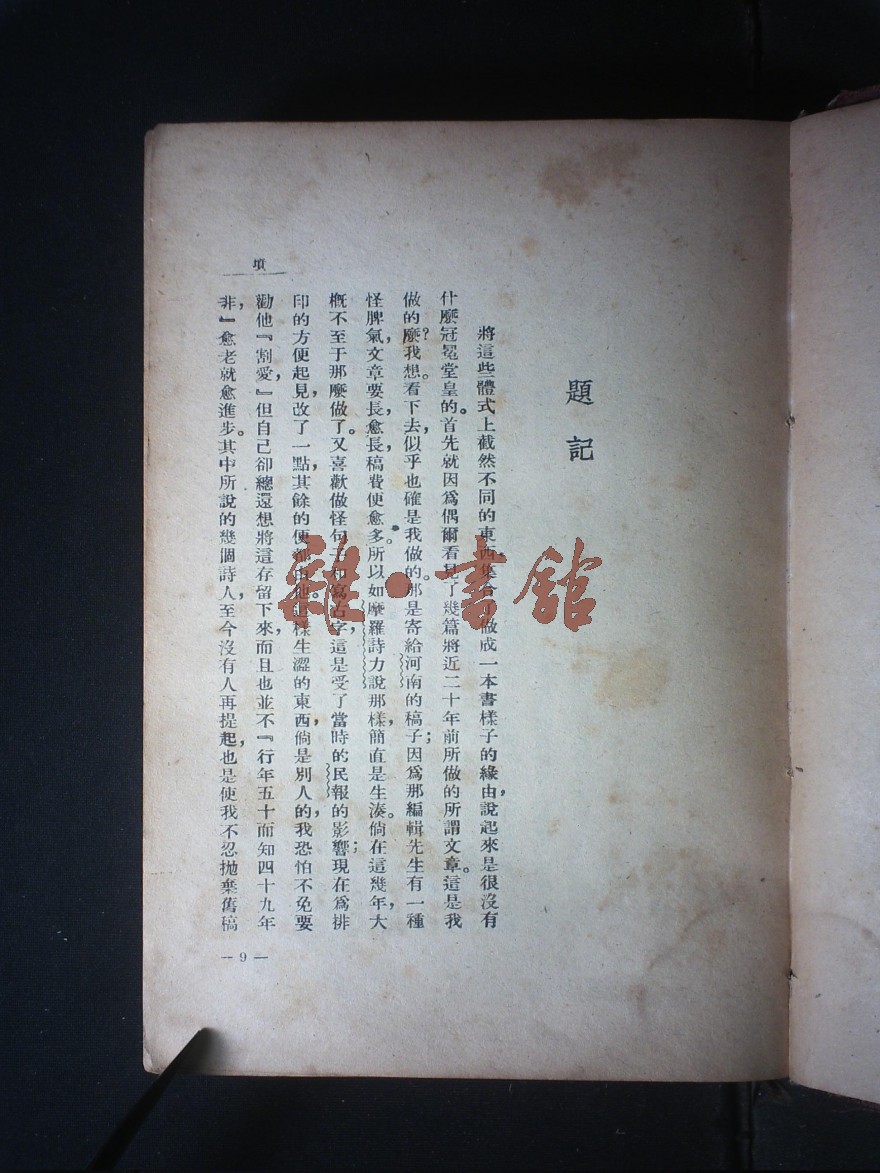 題記
將這些體式上截然不同的東西，集合了做成一本書樣子的緣由，說起來是很沒有
什麼冠冕堂皇的。首先就因爲偶爾看見了幾篇將近二十年前所做的所謂文章。這是我
做的麼？我想。看下去，似乎也確是我做的。那是寄給河南的稿子；因爲那編輯先生有一種
怪脾氣，文章要長，愈長，稿費便愈多。所以如摩羅詩力說那樣，簡直是生湊。倘在這幾年，大
槪不至于那麼做了。又喜歡做怪句子和寫古字，這是受了當時的民報的影響；現在爲排
印的方便起見，改了一點，其餘的便都由他。這樣生澀的東西，倘是別人的，我恐怕不免要
勸他『割愛，』但自己卻總還想將這存留下來，而且也並不『行年五十而知四十九年
非，』愈老就愈進步。其中所說的幾個詩人，至今沒有人再提起，也是使我不忍拋棄舊稿
墳
— 9 —
雜·書館